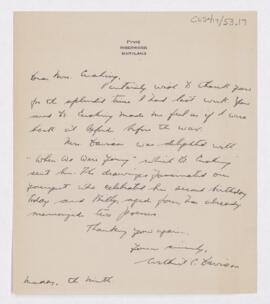 CUS417/53.17
FYVIE
RIDERWOOD
MARYLAND
Dear Mrs. Cushing,
I certainly wish to thank you
for the splendid time I had last week. You
and Dr Cushing made me feel as if I were
back at Oxford before the war.
Mrs. Davison was delighted with
"When We Were Young" which Dr Cushing
sent him. The drawings fascinated our
youngest who celebrated his second birthday
today and Billy, aged four has already
memorized two poems
Thanking you again.
Yours sincerely,
Wilburt C. Davison
Monday, the ninth